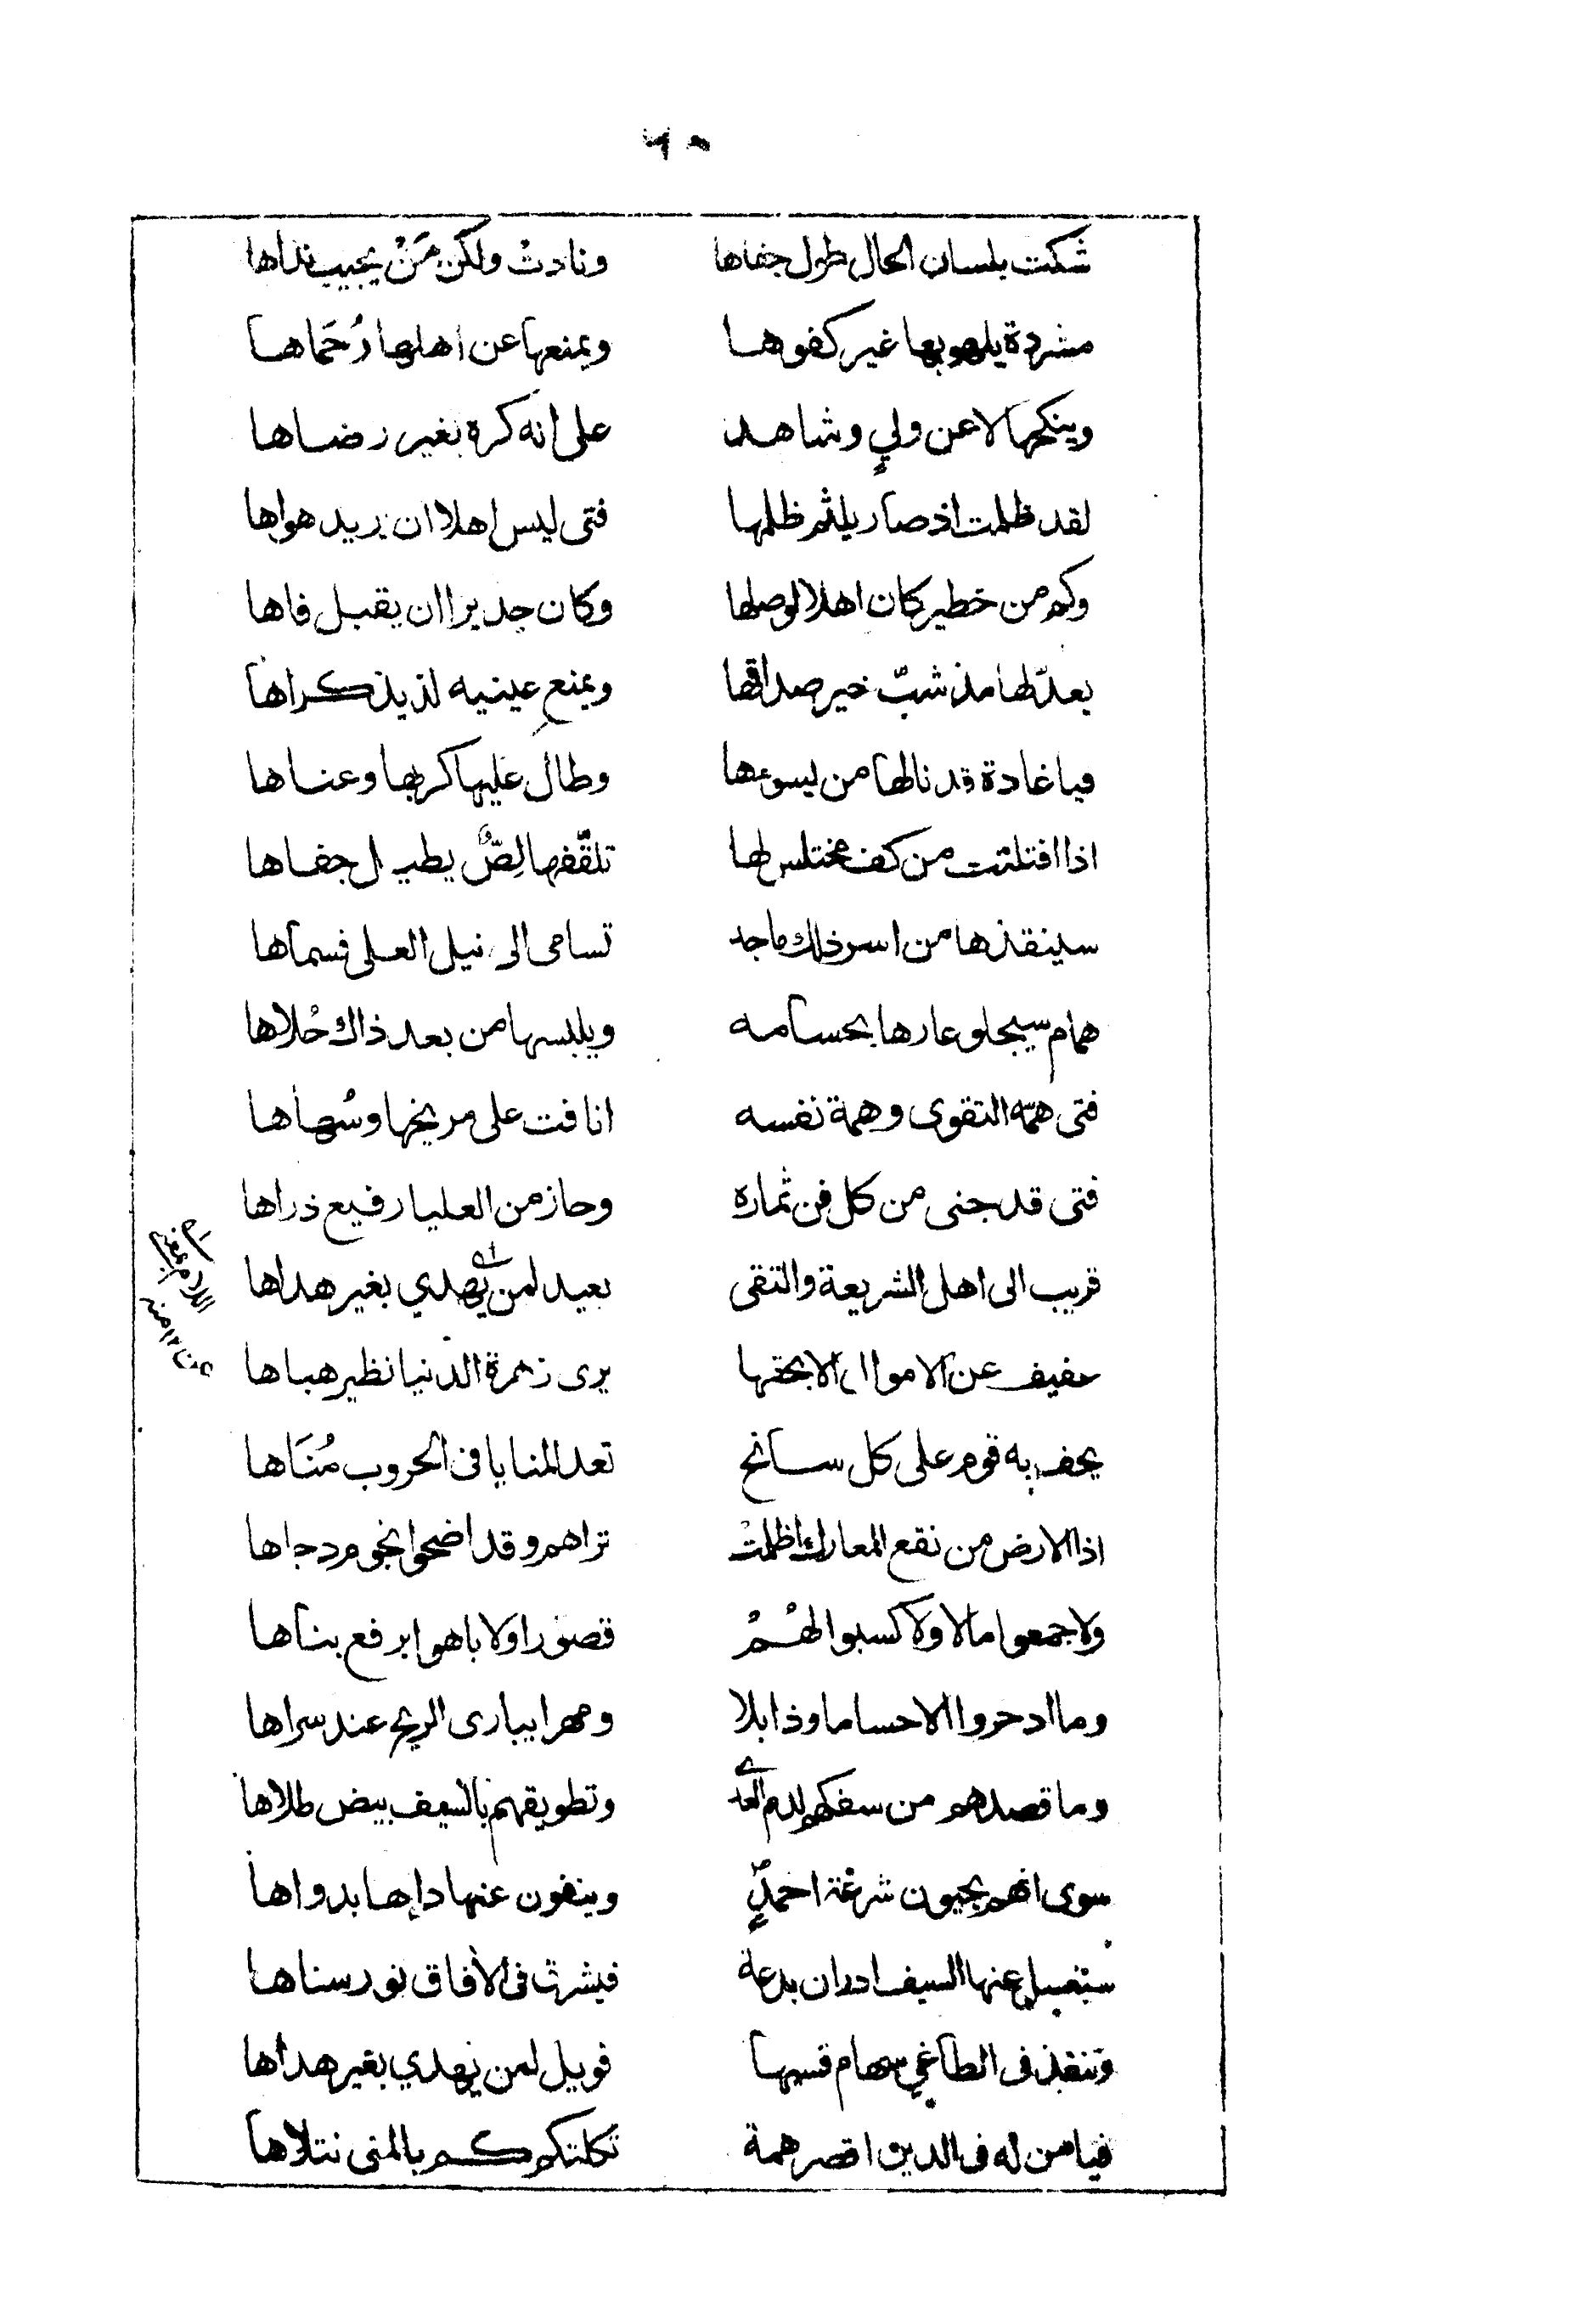 شكت بلسان الحال طول جفاها ونادتْ ولكن مَنْ يجيب نداها
مشردة يلهو بها غير كفوها ويمنعها عن اهلها رُحَماها
وينكحها لا عن وليٍ وشاهد على انه كره بغير رضاها
لقد ظلمت اذ صار يلثم ظلمها فتى ليس اهلا ان يريد هواها
وكم من خطير كان اهلا لوصلها وكان جديرا ان يقبل فاها
يعدّ لها مذ شبّ خير صداقها ويمنع عينيه لذيذ كراها
فيا غادة قد نالها من يسوءها وطال عليها كربها وعناها
اذا افتلتت من كف مختلس لها تلقّفها لِصٌّ يطيل جفاها
سينقذها من اسر ذلك ماجد تسامى الى نيل العلى فسماها
همام سيجلو عارها بحسامه ويلبسها من بعد ذاك حُلاها
فتى همّه التقوى وهمة نفسه انافت على مريخها وسُهاها
فتى قد جنى من كل فن ثماره وحاز من العليا رفيع ذراها
قريب الى اهل الشريعة والتقى بعيد لمن يهدي بغير هداها
عفيف عن الاموال الا بحقها يرى زهرة الدنيا نظير هباها
يحف به قوم على كل سابح تعد المنايا فى الحروب مُنَاها
اذا الارض من نقع المعارك اظلمتْ تراهم وقد اضحوا نجوم دجاها
ولا جمعوا مالا ولا كسبوا لهُمْ قصورا ولا باهوا برفع بناها
وما ادخروا الا حساما وذابلا ومهرا يبارى الريح عند سراها
وما قصدهم من سفكهم لدم العدى وتطويقهم بالسيف بيض طلاها
سوى انهم يحيون شرعة احمدٍ وينفون عنها داءها بدواها
ستغسل عنها السيف ادران بدعة فيشرق فى الافاق نور سناها
وتنفذ فى الطاغي سهام قسيها فويل لمن يهدي بغير هداها
فيا من له فى الدين اقصر همة ثكلتكم كم بالمنى نتلاها
اللام بمعنى
عن ١٢ منه